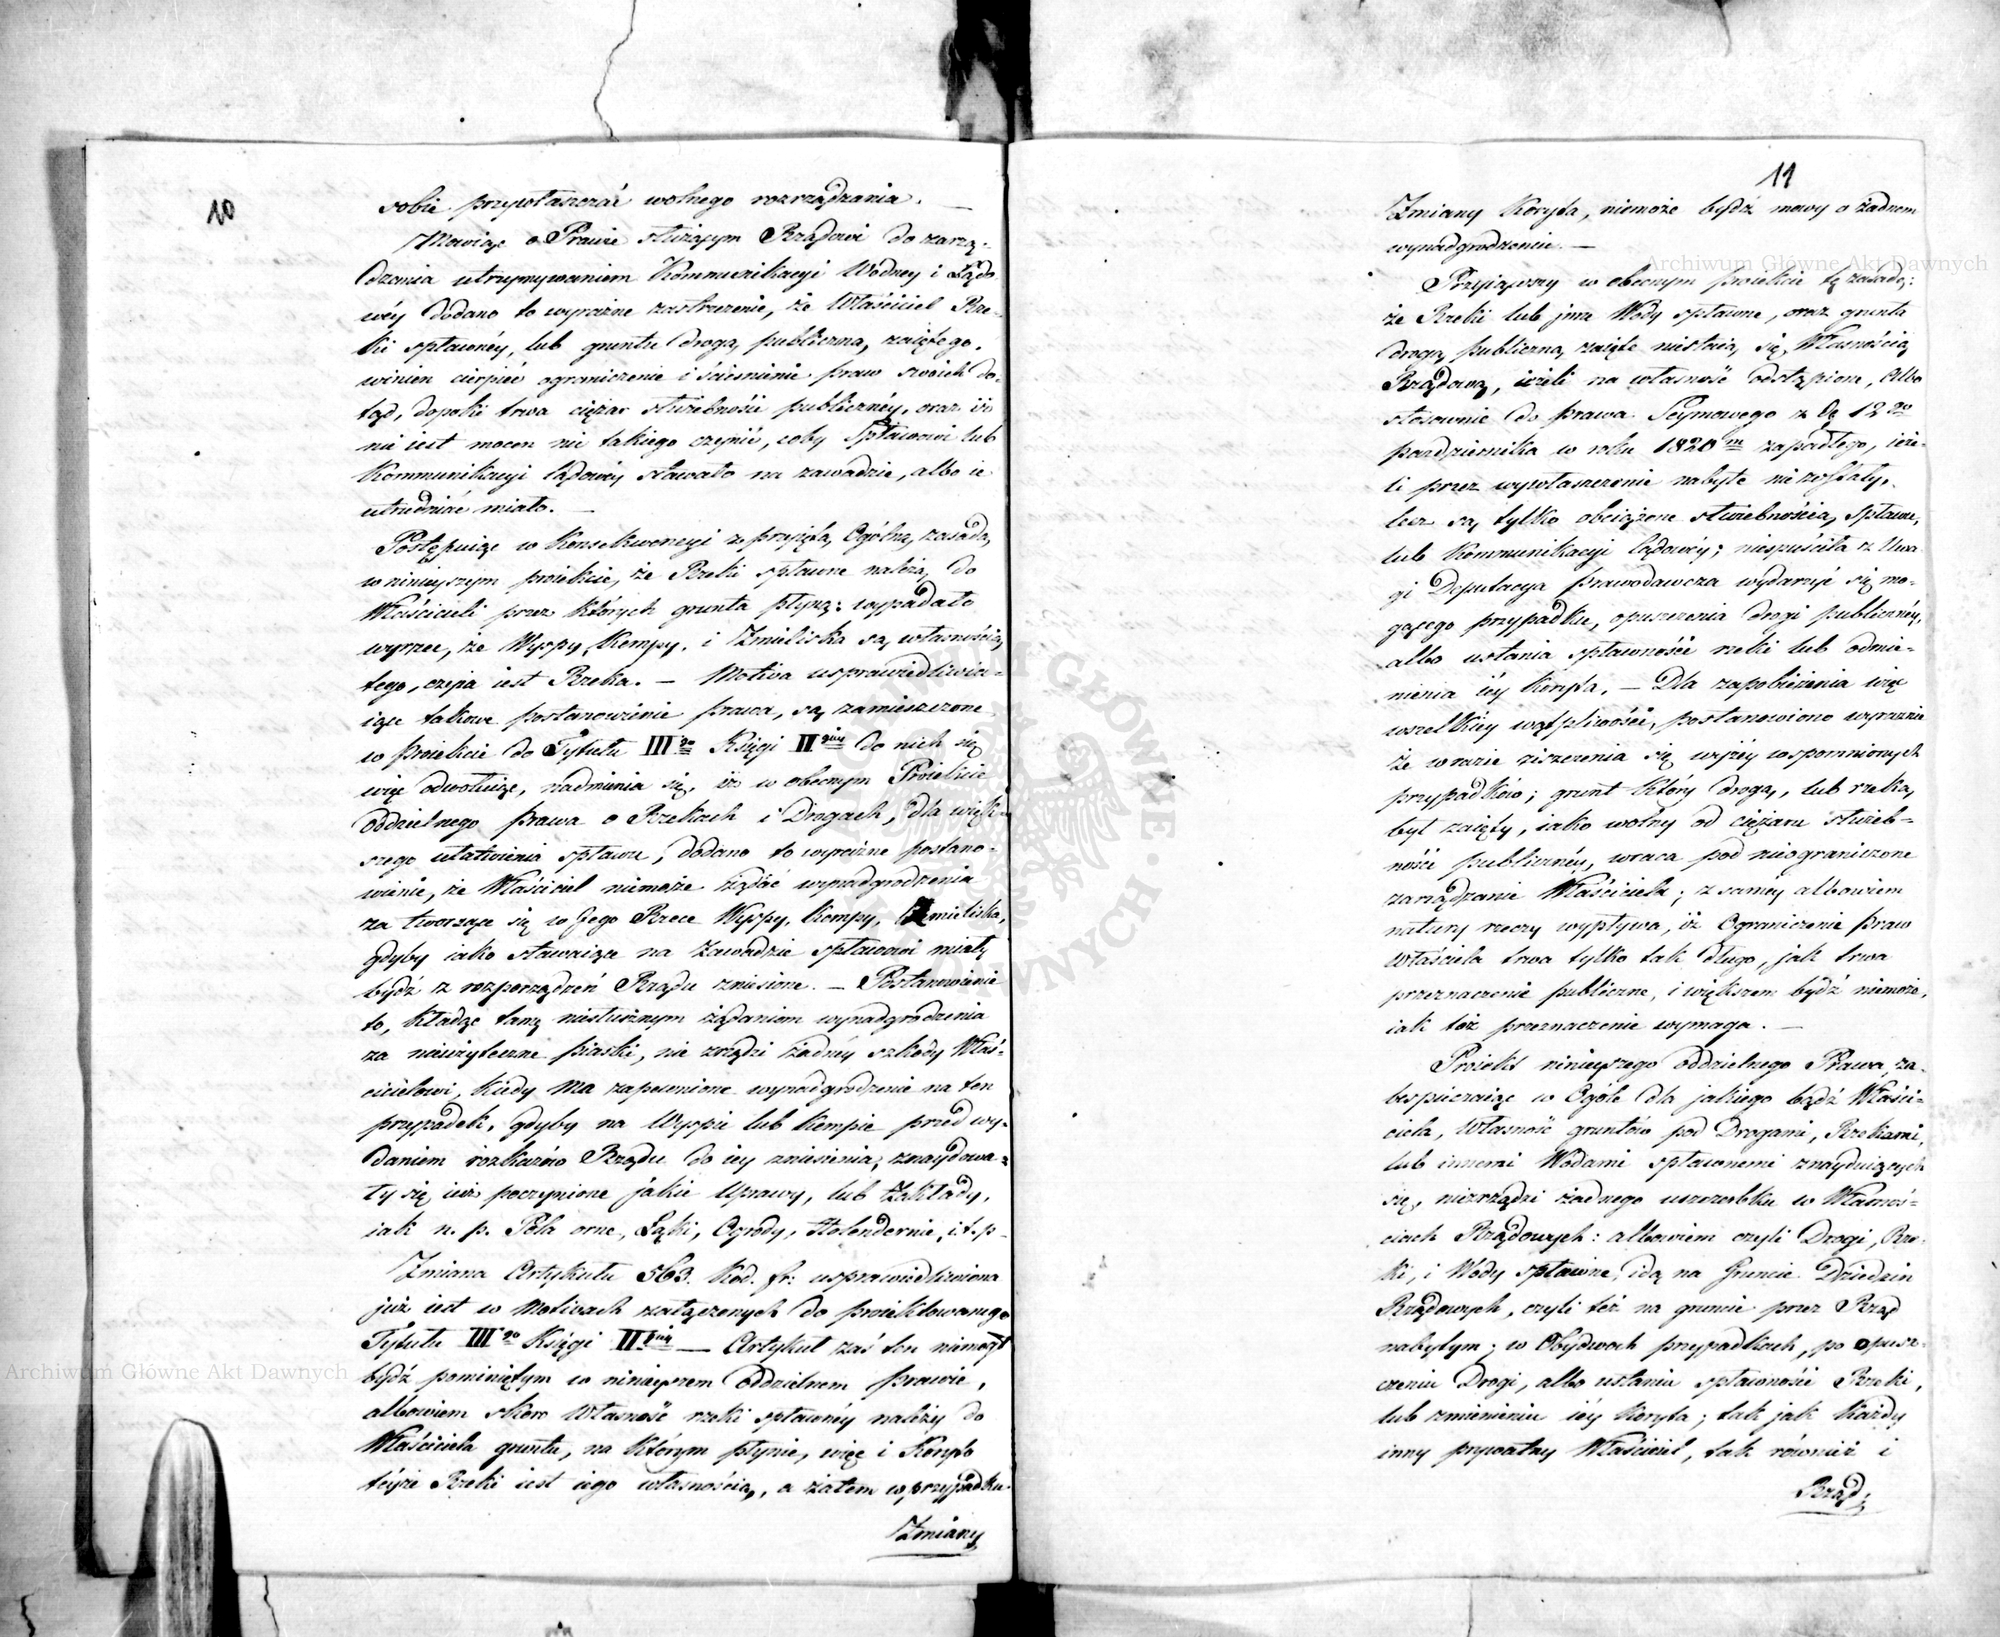 10
sobie przywłaszczać wolnego rozrządzania. —
Mówiąc o Prawie służącym Rządowi do zarzą-
dzania utrzymywaniem Kommunikacyi Wodney i Lądo
wéy dodano to wyraźne zastrzeżenie, że Właściciel Rze-
ki spławnéy, lub gruntu drogą publiczną zaiętego,
winien cierpieć ograniczenie i ścieśnienie praw swoich do-
tąd, dopóki trwa ciężar służebności publicznéy, oraz iż
nie iest mocen nic takiego czynić, coby Spławowi lub
Kommunikacyi lądowéy stawało na zawadzie, albo ie
utrudniać miało. —
Postępuiąc w Konsekwencyi z przyjętą Ogólną zasadą
w ninieyszym proiekcie, że Rzeki spławne należą do
Właścicieli przez których grunta płyną; wypadało
wyrzec, że Wyspy, Kempy, i Zmieliska są własnością
tego, czyia iest Rzeka. — Motiva usprawiedliwia-
iące takowe postanowienie prawa, są zamieszczone
w proiekcie do Tytułu III go Księgi II giey do nich się
więc odwołuiąc, nadmienia się, iż w obecnym Proiekcie
oddzielnego prawa o Rzekach i Drogach, dla więk-
szego ułatwienia spławu, dodano to wyraźne postano-
wienie, że Właściciel niemoże żądać wynadgrodzenia
za tworzące się w Jego Rzece Wyspy, Kempy, Zmieliska,
gdyby iako stawaiące na zawadzie spławowi miały
bydź z rozporządzeń Rządu zniesione. — Postanowienie
to, kładąc tamę niesłusznym żądaniom wynadgrodzenia
za nieużyteczne piaski, nie zrządzi żadnéy szkody Właś-
cicielowi, kiedy ma zapewnione wynadgrodzenie na ten
przypadek, gdyby na Wyspie lub Kempie przed wy-
daniem rozkazów Rządu do iey zniesienia, znaydowa-
ły się iuż poczynione jakie Uprawy, lub Zakłady,
iak n. p. Pola orne, Łąki, Ogrody, Holendernie, i.t.p
Zmiana Artykułu 563. Kod. fr: usprawiedliwiona
już iest w Motivach załączonych do proiektowanego
Tytułu III go Księgi II giey — Artykuł zaś ten niemógł
bydź pominiętym w ninieyszem oddzielnem prawie,
albowiem skoro Własność rzeki spławnéy należy do
Właściciela gruntu, na którym płynie, więc i Koryto
téyże Rzeki iest iego własnością, a zatem w przypadku
Zmiany
11
Zmiany Koryta, niemoże bydź mowy o żadnem
wynadgrodzeniu. —
Przyiąwszy w obecnym proiekcie tę zasadę:
że Rzeki lub inne Wody spławne, oraz grunta
drogą publiczną zaięte niestaią się Własnością
Rządową, ieżeli na własność odstąpione, albo
stosownie do prawa Seymowego z dą 12 go
października w roku 1820 m zapadłego, ieże-
li przez wywłaszczenie nabyte nie zostały,
lecz są tylko obciążone służebnością spławu,
lub Kommunikacyi lądowéy; niespuściła z Uwa
gi Deputacya prawodawcza wydarzyć się mo-
gącego przypadku, opuszczenia drogi publicznéy,
albo ustania spławności rzeki lub odmie-
nienia iéy Koryta. — Dla zapobieżenia więc
wszelkiey wątpliwości, postanowiono wyraźnie
że w razie ziszczenia się wyżéy wspomnionych
przypadków; grunt który drogą, lub rzeką
był zaięty, iako wolny od ciężaru służeb-
ności publicznéy, wraca pod nieograniczone
zarządzanie Właściciela; z saméy albowiem
natury rzeczy wypływa, iż Ograniczenie praw
właściciela trwa tylko tak długo, jak trwa
przeznaczenie publiczne, i większem bydź niemoże,
iak też przeznaczenie wymaga. —
Proiekt ninieyszego oddzielnego Prawa, za-
bespieczaiąc w Ogóle dla jakiego bądź Właści-
ciela, własność gruntów pod Drogami, Rzekami,
lub innemi Wodami spławnemi znayduiących
się, niezrządzi żadnego uszczerbku w Własnoś-
ciach Rządowych: albowiem czyli Drogi, Rze-
ki, i Wody spławne, idą na Gruncie Dziedzin
Rządowych, czyli też na gruncie przez Rząd
nabytym; w Obydwóch przypadkach, po opusz-
czeniu Drogi, albo ustaniu spławności Rzeki,
lub zmienieniu iéy Koryta; tak jak każdy
inny prywatny Właściciel, tak równie i
Rząd,
Archiwum Główne Akt Dawnych
Archiwum Główne Akt Dawnych